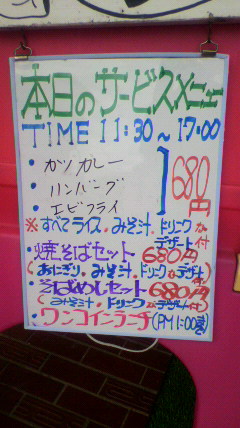 本日のサービスメニュー
TIME 11:30~17:00
・カツカレー
・ハンバーグ
・エビフライ
680円
※すべてライス.みそ汁.ドリンク
デザート付
・焼そばセット 680円
(おにぎり.みそ汁.ドリンク.デザート付)
・そばめしセット 680円
(みそ汁.ドリンク.デザート付)
・ワンコインランチ(PM1:00迄)